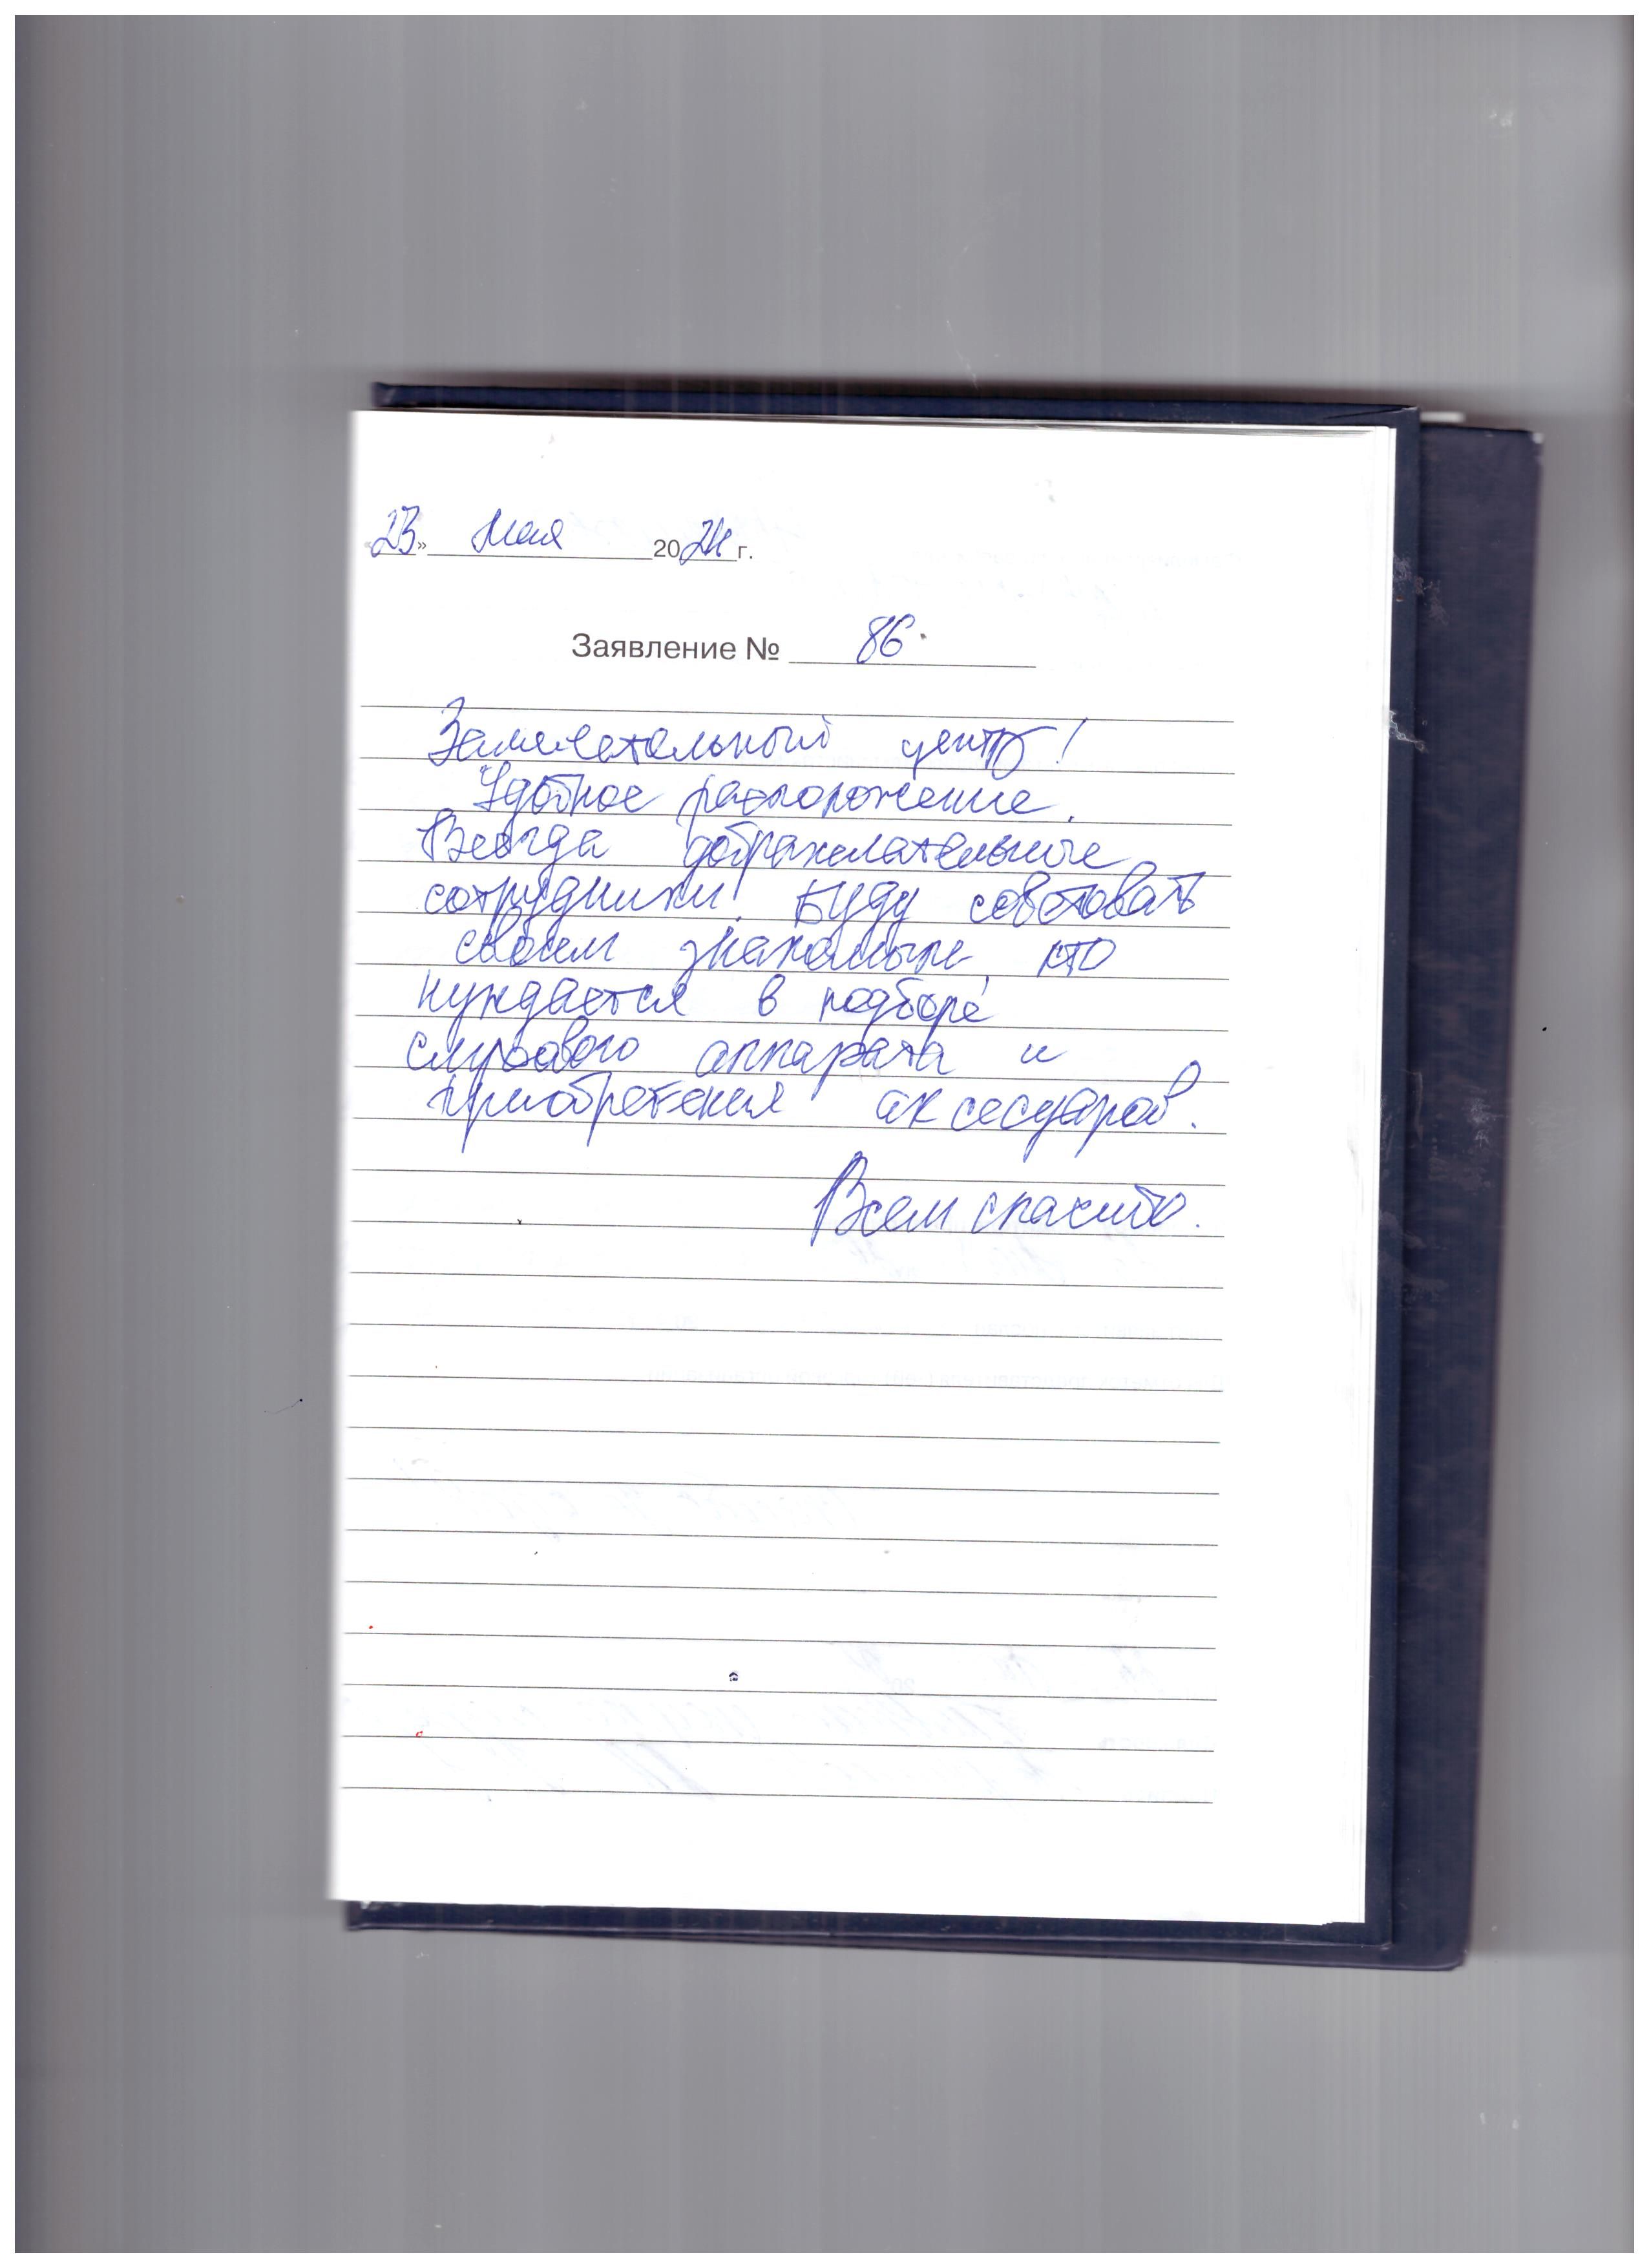 «23» мая 2024 г.
Заявление № 86.
Замечательный центр!
Удобное расположение.
Всегда доброжелательные
сотрудники! Буду советовать
своим знакомым, кто
нуждается в подборе
слухового аппарата и
приобретения аксесуаров.
Всем спасибо.